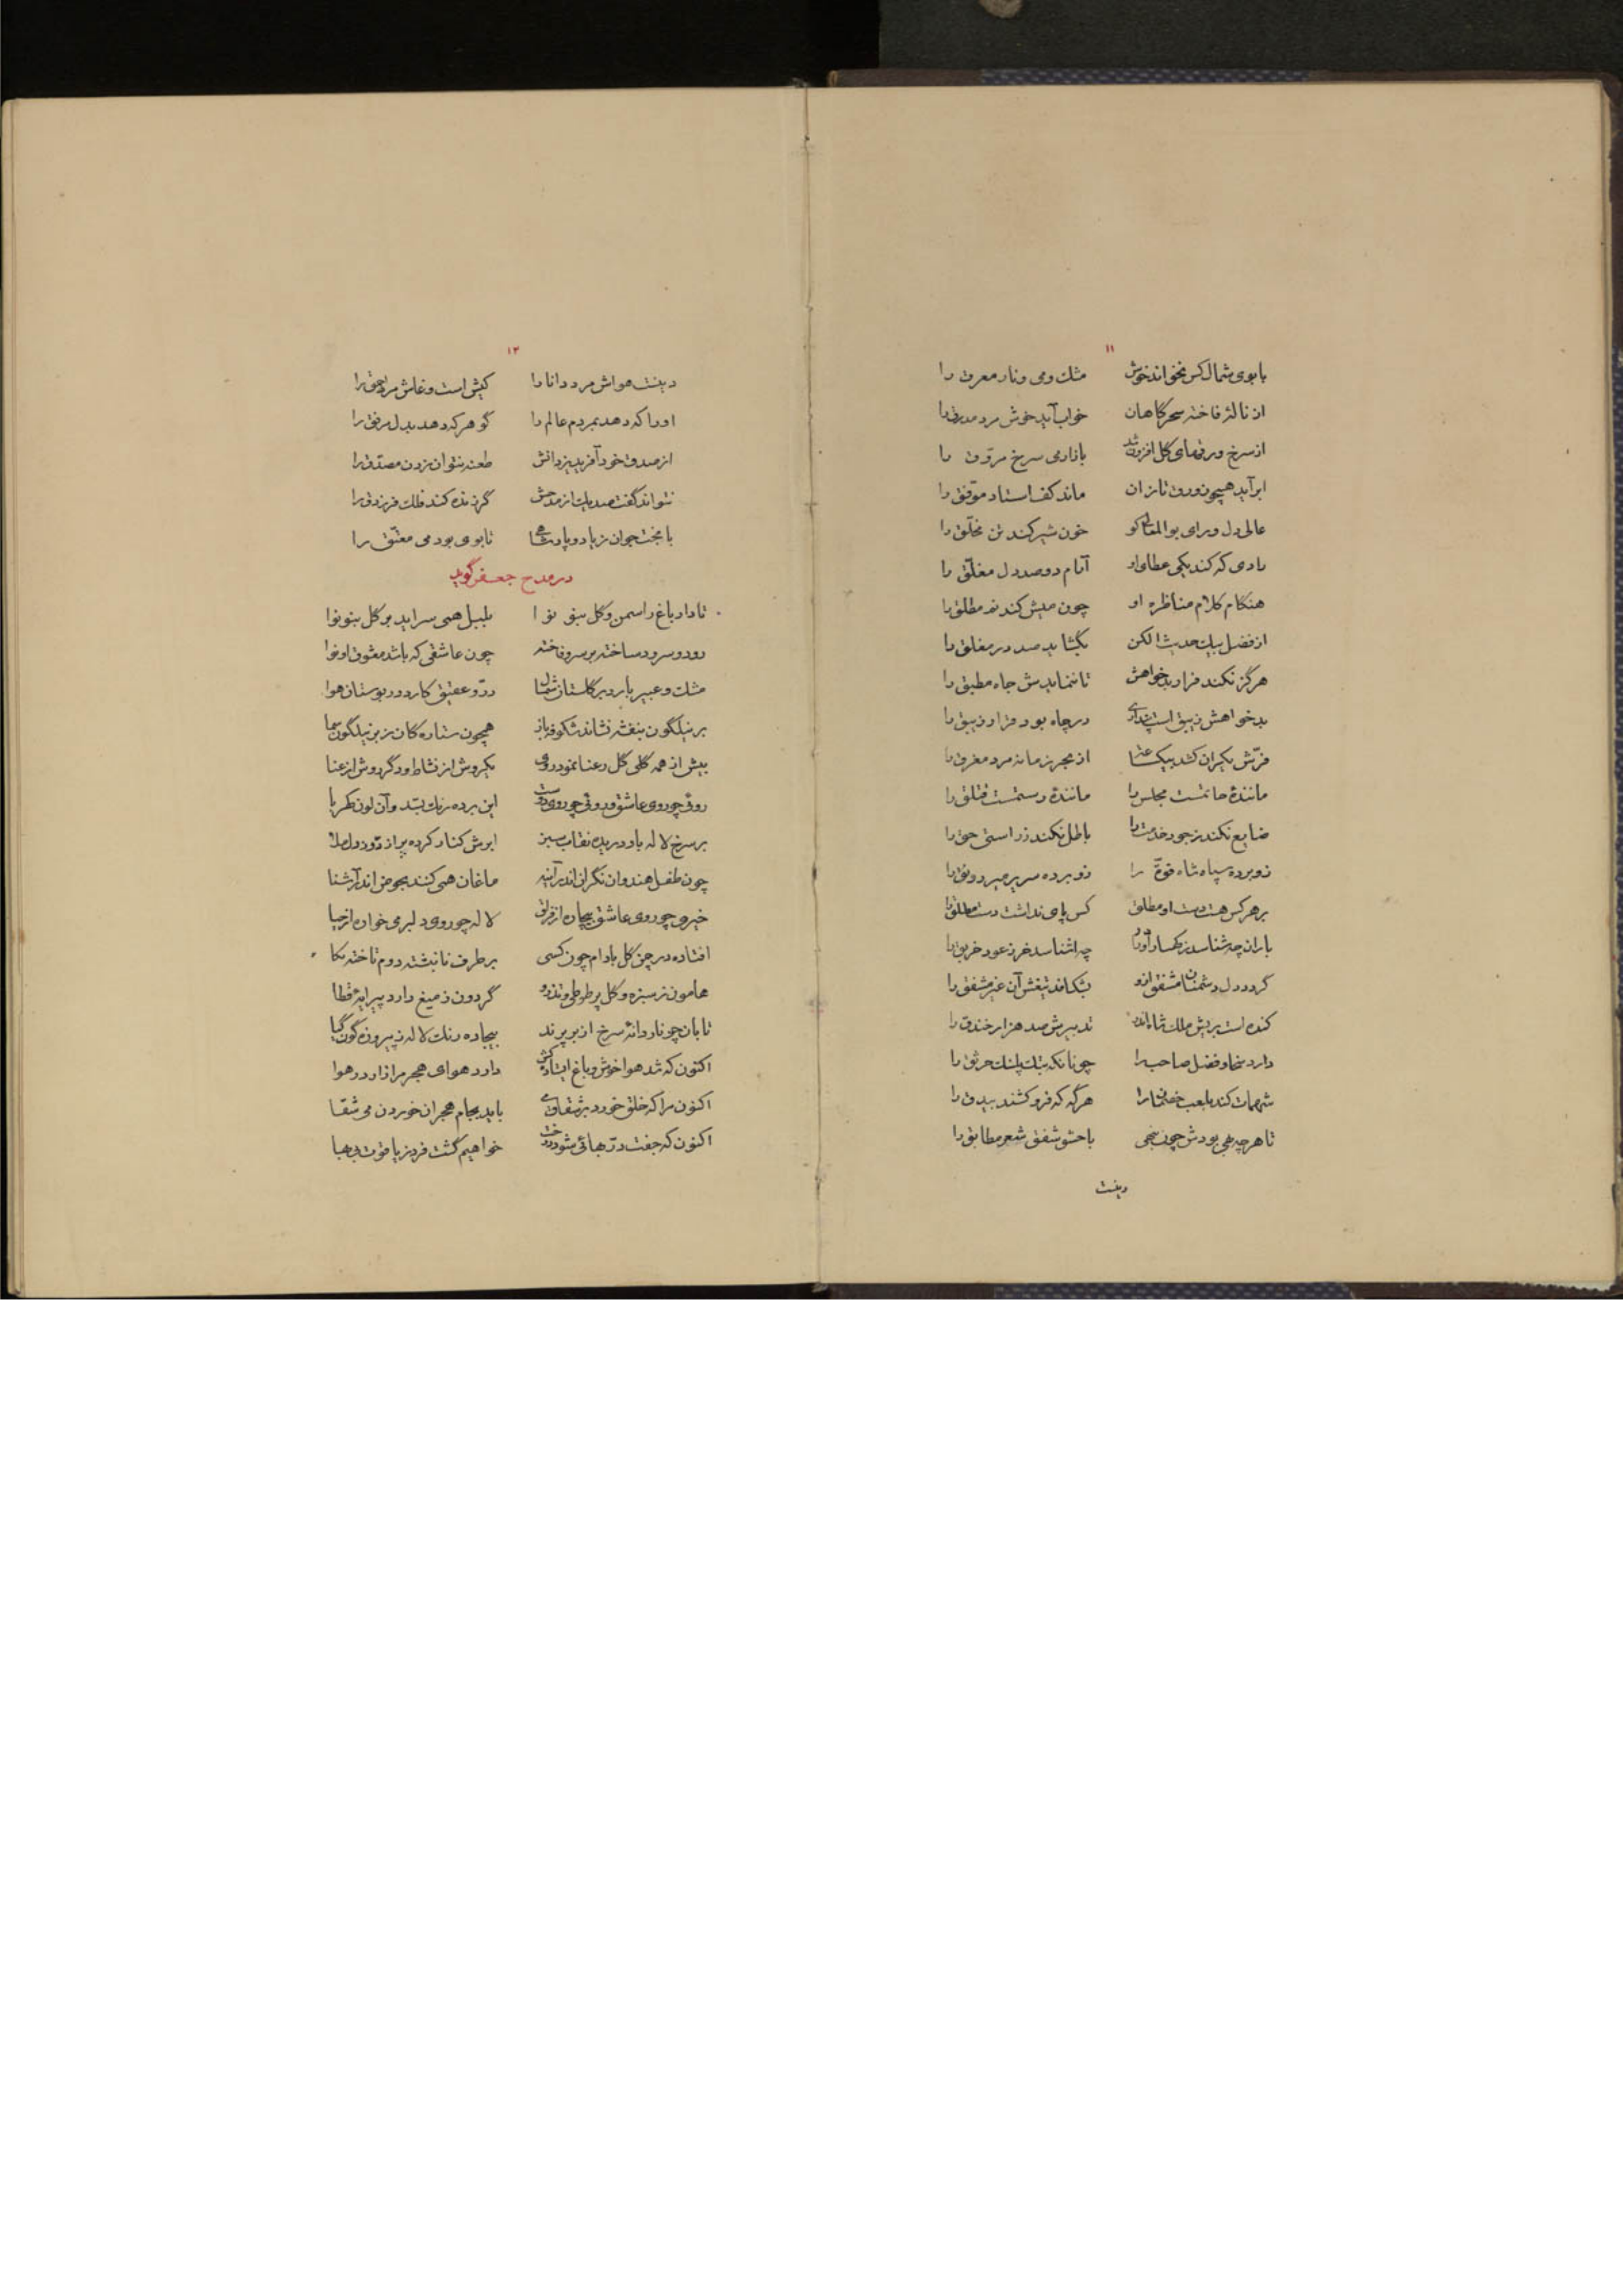 ۱۱
با بوی شمال کس نخواند خوش مشک و می و نار معرق را
از نالهٔ فاخته سحرگاهان خواب آید خوش مرد مدرق را
از سرخ ورقهای گل افزون شد بازار می سرخ مروّق را
ابر آید همچو زورق تازان ماند کف استاد موفّق را
عالی دل و رای بوالمعالی کو خون شیر کند تن مخلّق را
رادی که کند یکی عطای او آنام دو صد دل معلّق را
هنگام کلام مناظره او چون میش کند نر مطلق را
از فضل بیک حدیث الکن بگشاید صد در مغلق را
هرگز نکند فرا بدخواهش تا ننماید ش جاه مطبق را
بدخواهش زیبق است پنداری در چاه بود فرار زیبق را
فرّش بکران کشد بیک ساعت از بحر زمانه مرد مغرق را
مانندهٔ حاتمست مجلس را مانندهٔ رستمست فیلق را
ضایع نکند ز جود خدمت را باطل نکند ز راستی حق را
زو برده سپاه شاه قوّت را زو برده سریر میر رونق را
بر هر کس هست دست او مطلق کس پای نداشت دست مطلق را
باران چه شناسد ز کهسار آوند چه شناسد خر ز عود خربق را
گردد دل دشمنان مشفق ازو بشکافد تیغش آن غیر مشفق را
کنده است بپیش ملک شاه اندر تدبیرش صد هزار خندق را
دارد سخا و فضل صاحب را چونانکه بتک پلنگ خرنق را
شهمات کند بلعب خصمان را هرگه که فرو کشند بیدق را
تا هرچه همی بودش چون سنجی با حشو شفق شعر مطابق را
دینست
۱۲
دینست هواش مرد دانا را کیش است وغاش مرد احمق را
او را که دهد بمردم عالم را گوهر که دهد بدل مرفق را
از صدق خود آفرید یزدانش طعنه نتوان زدن مصدّق را
نتواند گفت صد یک از مدحش گر زنده کند فلک فرزدق را
با بخت جوان زیاد و پادشاهی تا بوی بود می معتّق را
در مدح جعفر گوید
تا داد باغ را سمن و گل بنو نوا بلبل همی سراید بر گل بنو نوا
رود و سرود ساخته بر سرو فاخته چون عاشقی که باشد معشوق او نوا
مشک و عبیر بارد بر گلستان شمال درّ و عقیق کارد در بوستان هوا
بر نیلگون بنفشه نشاند شکوفه باز همچون ستارگان زبر نیلگون سما
بیش از همه گلی گل رعنا نمود روی یکروش از نشاط و دگر روش از عنا
روئی چو روی عاشق و روئی چو روی دوست این برده رنگ بسّد و آن لون کهربا
بر سرخ لاله باد دریده نقاب سبز ابرش کنار کرده پر از درّ و دل ملا
چون طفل هندوان نگران اندر آینه ماغان همی کنند بحوض اندر آشنا
خیری چو روی عاشق بیچاره از فراق لاله چو روی دلبر می خواره از حیا
افتاده در چمن گل بادام چون کسی بر طرف نانبشته درم تاخته بکا
هامون ز سبزه و گل پر طوطی و تذرو گردون ز میغ دارد پیرایهٔ قطا
تابان چو ناردانهٔ سرخ از بر پرند بیجاده رنگ لاله ز پیروزه گون گیا
اکنون که شد هوا خوش و باغ ایستاد کش دارد هوای هجر مرا زار در هوا
اکنون مرا که خلق خورد بر شقاق می باید بجام هجران خوردن می شقا
اکنون که جفت درّ بهائی شود درخت خواهیم گشت فرد ز یاقوت بی بها